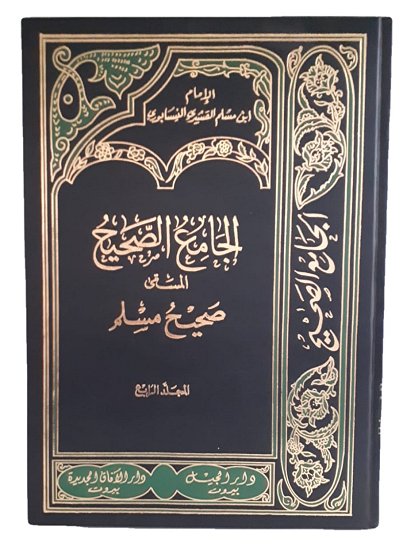 الإمام
ابن مسلم القشيري النيسابوري
الجامع الصحيح
المسمى
صحيح مسلم
المجلد الرابع
دار الجيل
بيروت
دار الآفاق الجديدة
بيروت
الجامع الصحيح